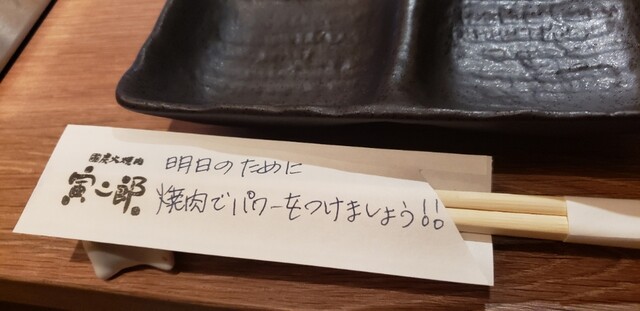 国産火焼肉
寅二郎
明日のために
焼肉でパワーをつけましょう!!